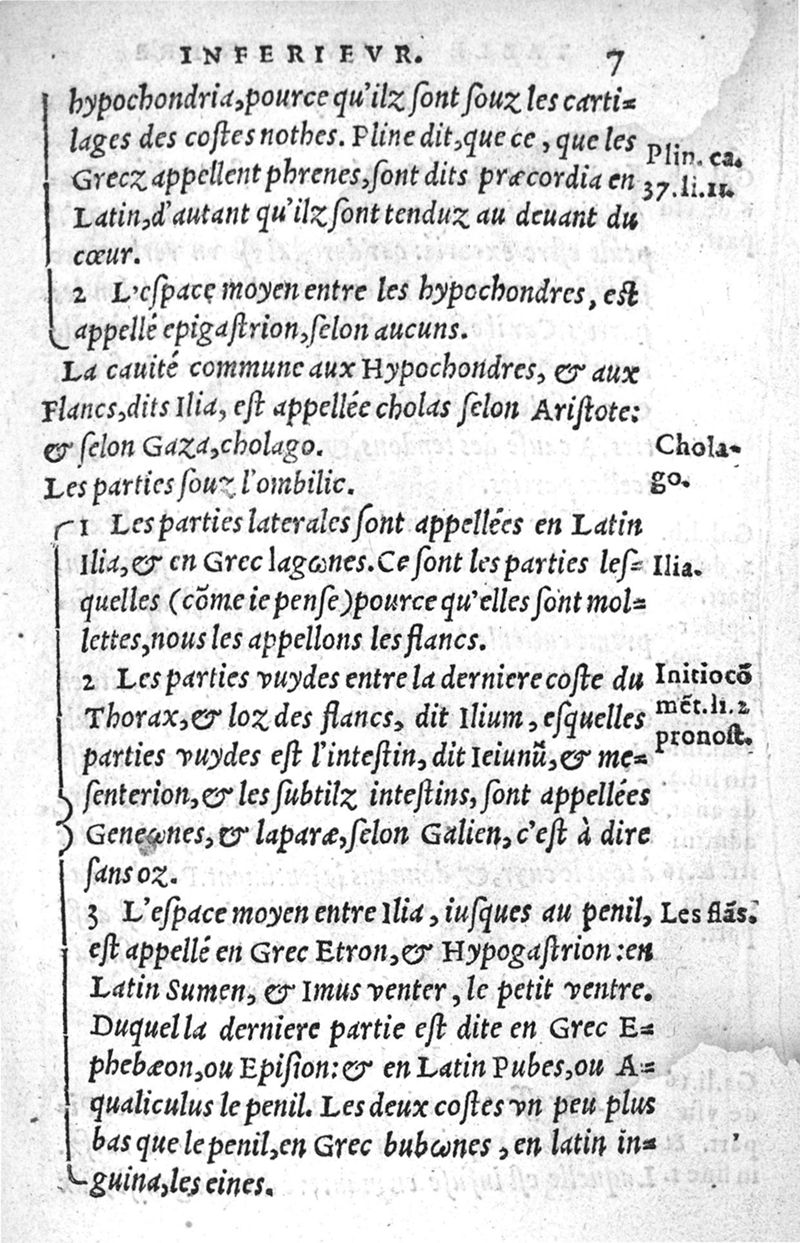 INFERIEVR. 7
hypochondria, pource qu'ilz ſont ſouz les carti=
lages des coſtes nothes. Pline dit, que ce, que les
Grecz appellent phrenes, ſont dits præcordia en
Latin, d'autant qu'ilz ſont tenduz au deuant du
cœur.
Plin. ca.
37. li. 11.
2 L'eſpace moyen entre les hypochondres, eſt
appellé epigaſtrion, ſelon aucuns.
La cauité commune aux Hypochondres, & aux
Flancs, dits Ilia, eſt appellée cholas ſelon Ariſtote:
& ſelon Gaza, cholago.
Chola-
go.
Les parties ſouz l'ombilic.
1 Les parties laterales ſont appellées en Latin
Ilia, & en Grec lagωnes. Ce ſont les parties leſ=
quelles (cõme ie penſe) pource qu'elles ſont mol=
lettes, nous les appellons les flancs.
Ilia.
2 Les parties vuydes entre la derniere coſte du
Thorax, & loz des flancs, dit Ilium, eſquelles
parties vuydes eſt l'inteſtin, dit Ieiunũ, & me=
ſenterion, & les ſubtilz inteſtins, ſont appellées
Geneωnes, & laparæ, ſelon Galien, c'eſt à dire
ſans oz.
Initio cõ
mẽt. li. 2
pronoſt.
3 L'eſpace moyen entre Ilia, iuſques au penil,
eſt appellé en Grec Etron, & Hypogaſtrion: en
Latin Sumen, & Imus venter, le petit ventre.
Duquel la derniere partie eſt dite en Grec E=
phebæon, ou Epiſion: & en Latin Pubes, ou A=
qualiculus le penil. Les deux coſtes vn peu plus
bas que le penil, en Grec bubωnes, en latin in=
guina, les eines.
Les flãs.